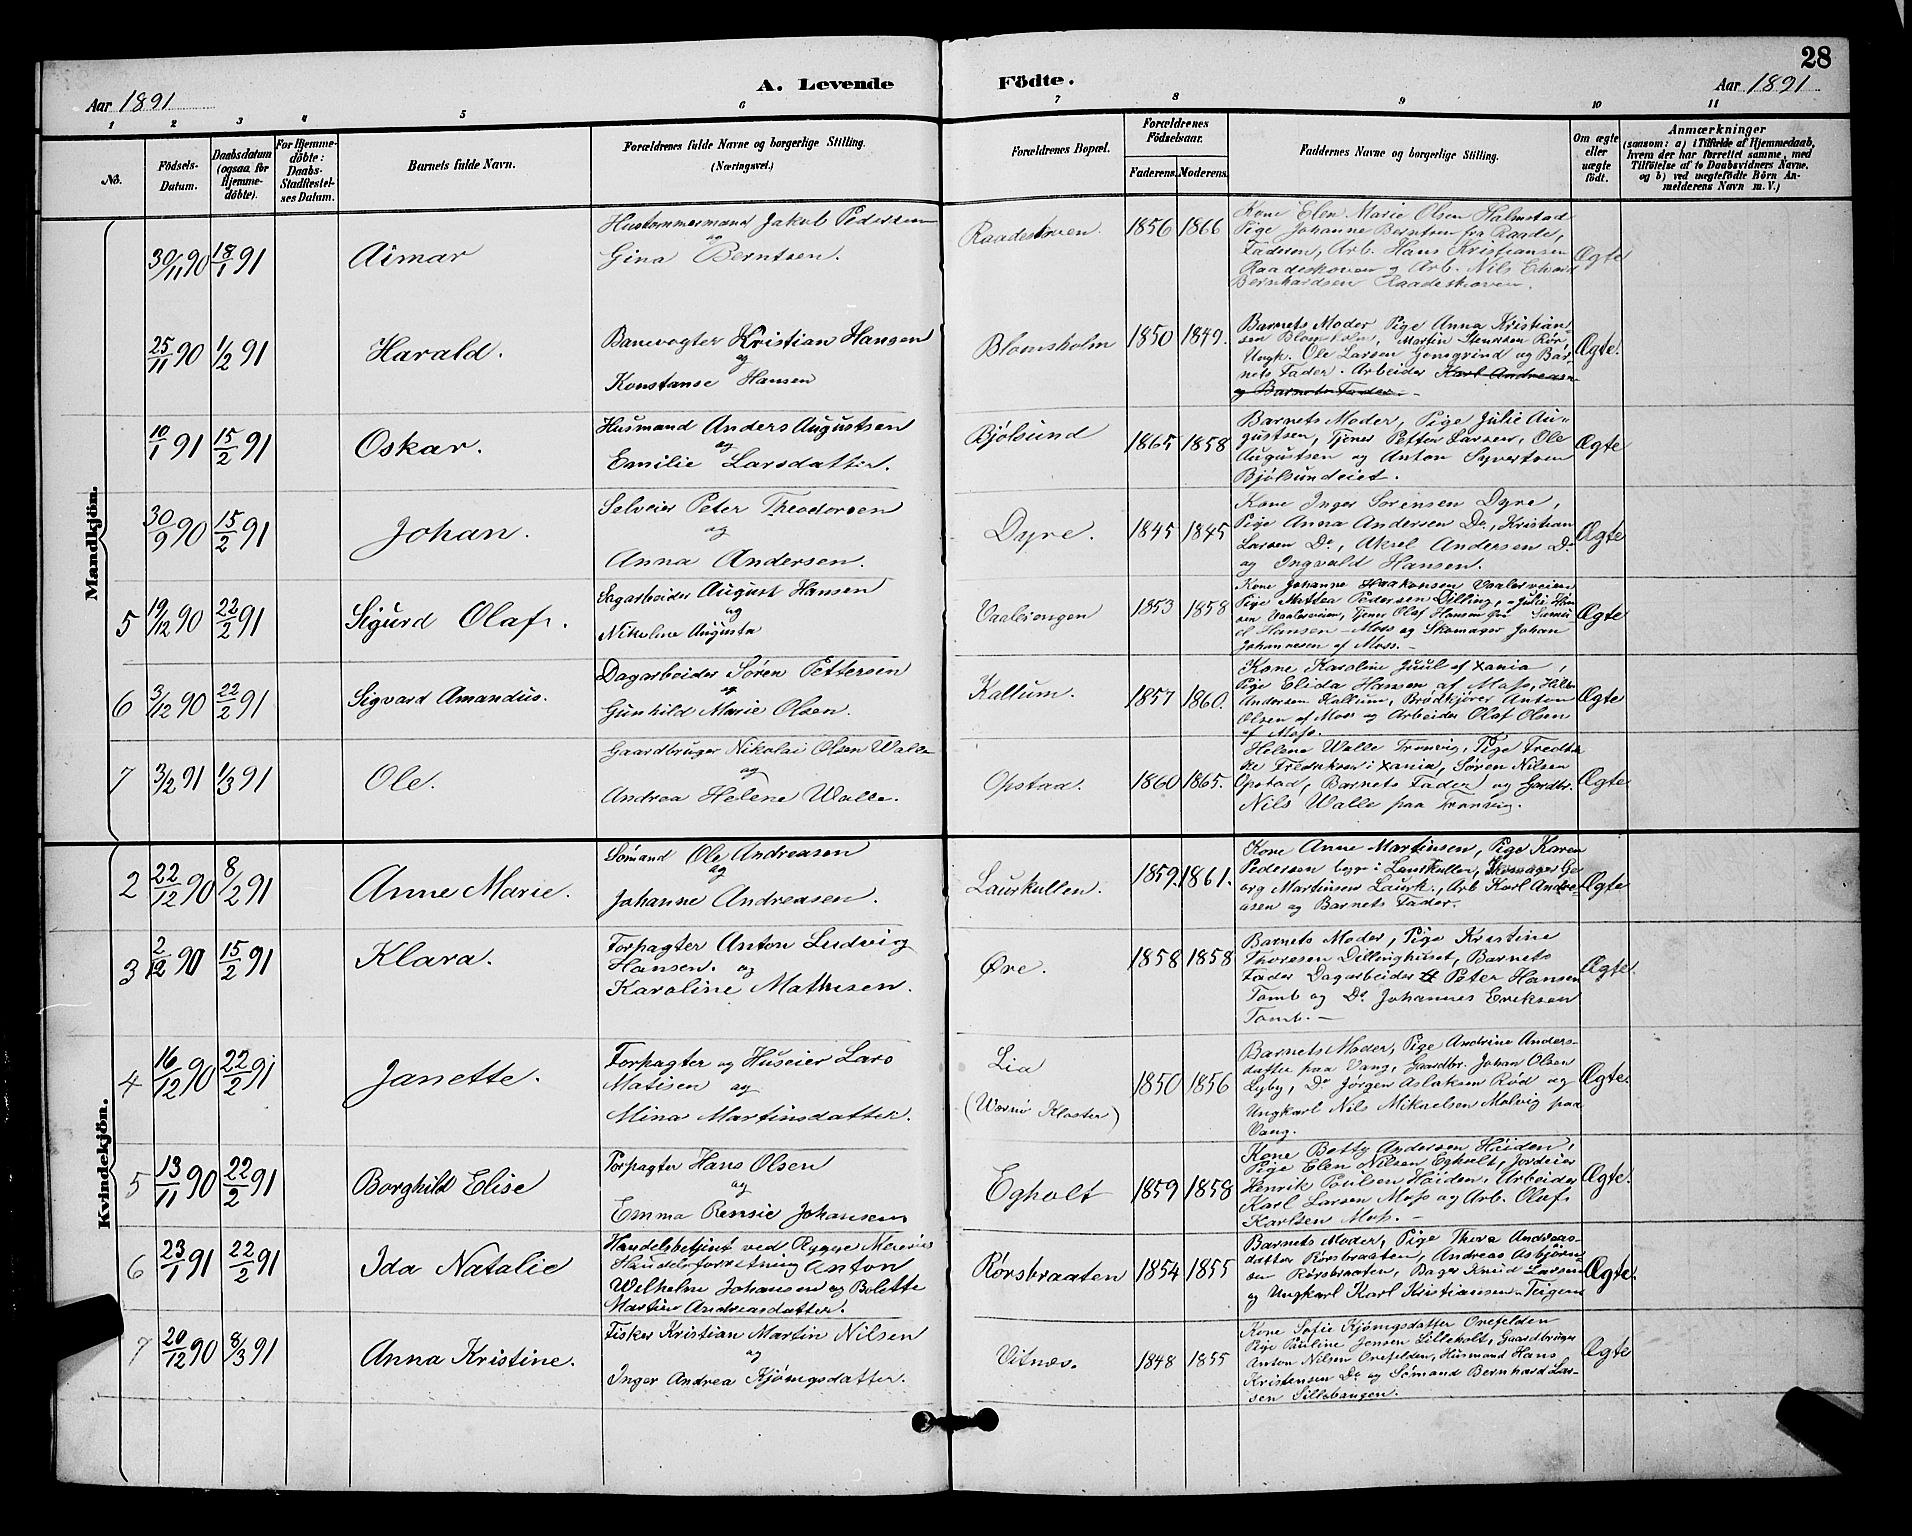 28
A. Levende Födte.
Aar 1891
Aar 1891
1 2 3 4 5 6 7 8 9 10 11
No.
Födsels-Datum.
Daabsdatum (ogsaa for Hjemmedöbte).
For Hjemmedöbte: Daabs-Stadfæstelses Datum.
Barnets fulde Navn.
Forældrenes fulde Navne og borgerlige Stilling.
(Næringsvei.)
Forældrenes Bopæl.
Forældrenes Födselsaar.
Faderens. Moderens.
Faddernes Navne og borgerlige Stilling.
Om ægte eller uægte födt.
Anmærkninger
(saasom: a) i Tilfælde af Hjemmedaab,
hvem der har forrettet samme, med
Tilföielse af to Daabsvidners Navne.
og b) ved uegtefödte Börn Anmelderens Navn m. V.)
Mandkjön.
30/11 90 18/1 91 Aimar
Hustømmermand Jakob Pedersen
og
Gina Berntsen.
Raadeskoven 1856 1866
Kone Elen Marie Olsen Halmstad
Pige Johanne Berntsen fra Raade,
Faderen, Arb. Hans Kristiansen
Raadeskoven og Arb. Nils Edvard
Bernhardsen Raadeskoven.
Ægte
25/11 90 1/2 91 Harald.
Banevogter Kristian Hansen
og
Konstanse Hansen
Blomsholm 1850 1849.
Barnets Moder, Pige Anna Kristian-
sen Blomsholm, Martin Stensen Rör,
Ungk. Ole Larsen Gensgrind og Bar-
nets Fader. Arbeider Karl Andreasen
og Barnets Fader.
Ægte.
10/1 91 15/2 91 Oskar.
Husmand Anders Augustsen
og
Emilie Larsdatter.
Bjølsund 1865 1858
Barnets Moder, Pige Julie Au-
gustsen, Tjener Petter Larsen, Ole
Augustsen og Anton Syvertsen
Bjølsundeiet.
Ægte
30/9 90 15/2 91 Johan.
Selveier Peter Theodorsen
og
Anna Andersen.
Dyre. 1845 1845
Kone Inger Sørensen Dyre,
Pige Anna Andersen Do, Kristian
Larsen Do, Aksel Andersen Do
og Ingvald Hansen.
Ægte
5 19/12 90 22/2 91 Sigurd Olaf.
Sagarbeider August Hansen
og
Nikoline Augusta
Vaalerengen 1853 1858
Kone Johanne Haakonsen Vaalerveien
Pige Mattea Pedersen Dilling, Julie Han
sen Vaalerveien, Tjener Olaf Hansen
Hansen Moss og Skomager Johan
Johannesen af Moss.
Ægte
6 3/12 90 22/2 91 Sigvard Amandus.
Dagarbeider Søren Pettersen
og
Gunhild Marie Olsen.
Kallum. 1857 1860.
Kone Karoline Juul af Xania,
Pige Elida Hansen af Moss,
Andersen Kallum, Brødkjører Anton
Olsen af Moss og Arbeider Olaf Olsen
af Moss.
Ægte
7 3/2 91 1/3 91 Ole.
Gaardbruger Nikolai Olsen Walle
og
Andrea Helene Walle.
Opstad. 1860 1865.
Helene Walle Tronvig, Pige Fredrik
ke Fredriksen i Xania, Søren Nilsen
Opstad, Barnets Fader og Gardbr.
Nils Walle paa Tronvig.
Ægte
Kvindekjön.
2 22/12 90 8/2 91 Anne Marie.
Sømand Ole Andreasen
og
Johanne Andreasen.
Laurkullen. 1859. 1861.
Kone Anne Martinsen, Pige Karen
Pedersen begge i Laurkullen, Skomager Ge
org Martinsen Laurk., Arb. Karl Andre-
asen og Barnets Fader.
Ægte
3 2/12 90 15/2 91 Klara.
Forpagter Anton Ludvig
Hansen. og
Karoline Mathisen.
Øre. 1858 1858
Barnets Moder, Pige Kristine
Thoresen Dillinghuset, Barnets
Fader Dagarbeider Peter Hansen
Tomb og Do Johannes Eriksen
Tomb.
Ægte.
4 16/12 90 22/2 91 Janette.
Forpagter og Huseier Lars
Matisen og
Mina Martinsdatter.
Lia
(Wærnø Kloster) 1850 1856
Barnets Moder, Pige Andrine Anders-
datter paa Vang, Gaardbr. Johan Olsen
Lyby, Do Jørgen Aslaksen Rød og
Ungkarl Nils Mikaelsen Molvig paa
Vang.
Ægte.
5 13/11 90 22/2 91 Borghild Elise
Forpagter Hans Olsen
og
Emma Rensie Johansen
Egholt 1859 1858
Kone Betty Andersen Høiden,
Pige Elen Nilsen Egholt, Jordeier
Henrik Paulsen Høiden, Arbeider
Karl Larsen Moss og Arb. Olaf
Karlsen Moss.
Ægte.
6 23/1 91 22/2 91 Ida Natalie
Handelsbetjent ved Rygge Meieries
Handelsforretning Anton
Wilhelm Johansen og Bolette
Martine Andreasdatter.
Rørsbraaten 1854 1855
Barnets Moder, Pige Thora Andreas-
datter Rørsbraaten, Andreas Asbjørn
sen Rørsbraaten, Bager Knud Larsen
og Ungkarl Karl Kristiansen Teigen
Ægte.
7 20/12 90 8/3 91 Anna Kristine.
Fisker Kristian Martin Nilsen
og
Inger Andrea Kjønigsdatter.
Vitnæs. 1848 1855
Kone Sofie Kjønigsdatter Orefelden
Pige Pauline Jensen Lilleholt, Gaardbruger
Anton Nilsen Orefelden, Husmand Hans
Kristensen Do og Sømand Bernhard Lar-
sen Sillebaugen.
Ægte